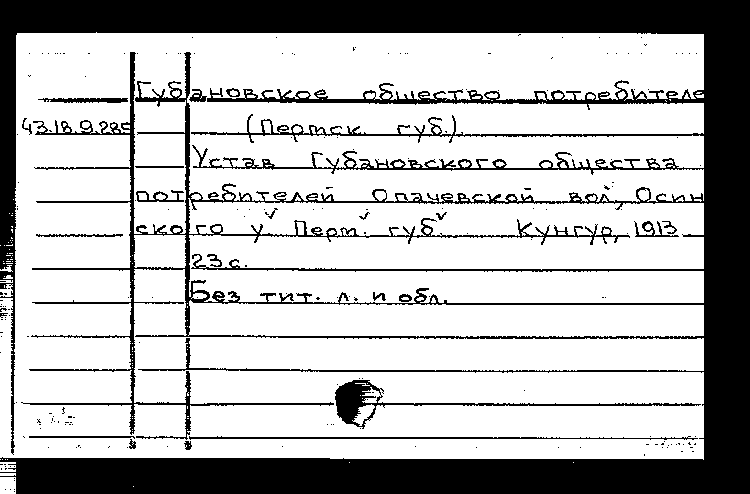 Губановское общество потребителе
43.18.9.285
(Пермск. губ.).
Устав Губановского общества
потребителей Опачевской вол., Осин
ского у. Перм. губ. Кунгур, 1913
23 с.
Без тит. л. и обл.